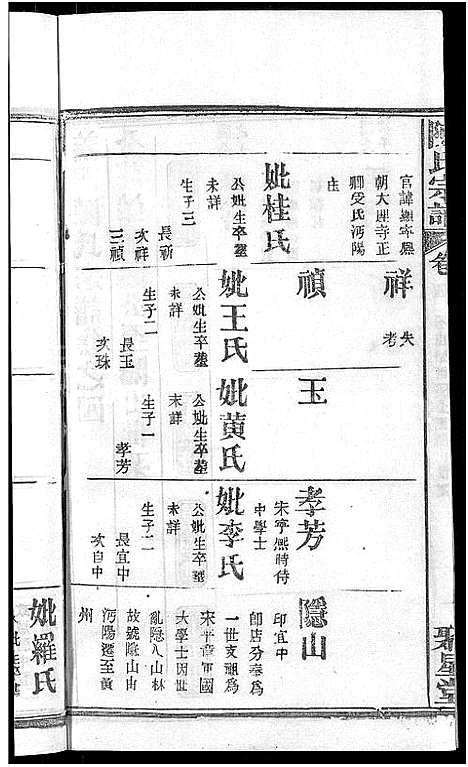 陳氏宗譜
卷
聚星堂
官諱繼宰熙
朝大理寺正
卿受氏沔陽
庄
妣桂氏
公妣生卒塟
未詳
生子三
長新
次祥
三禎
祥
失
考
禎
妣王氏
公妣生卒塟
未詳
生子二
長玉
次珠
玉
妣黄氏
公妣生卒塟
未詳
生子一
孝芳
孝芳
宋寧熙時侍
中學士
妣李氏
公妣生卒塟
未詳
生子二
長宜中
次自中
隱山
印宜中
卽店分奉爲
一世支祖爲
宋平章軍國
大學士因世
亂隱入山林
故號隱山由
沔陽遷至黄
州
妣羅氏